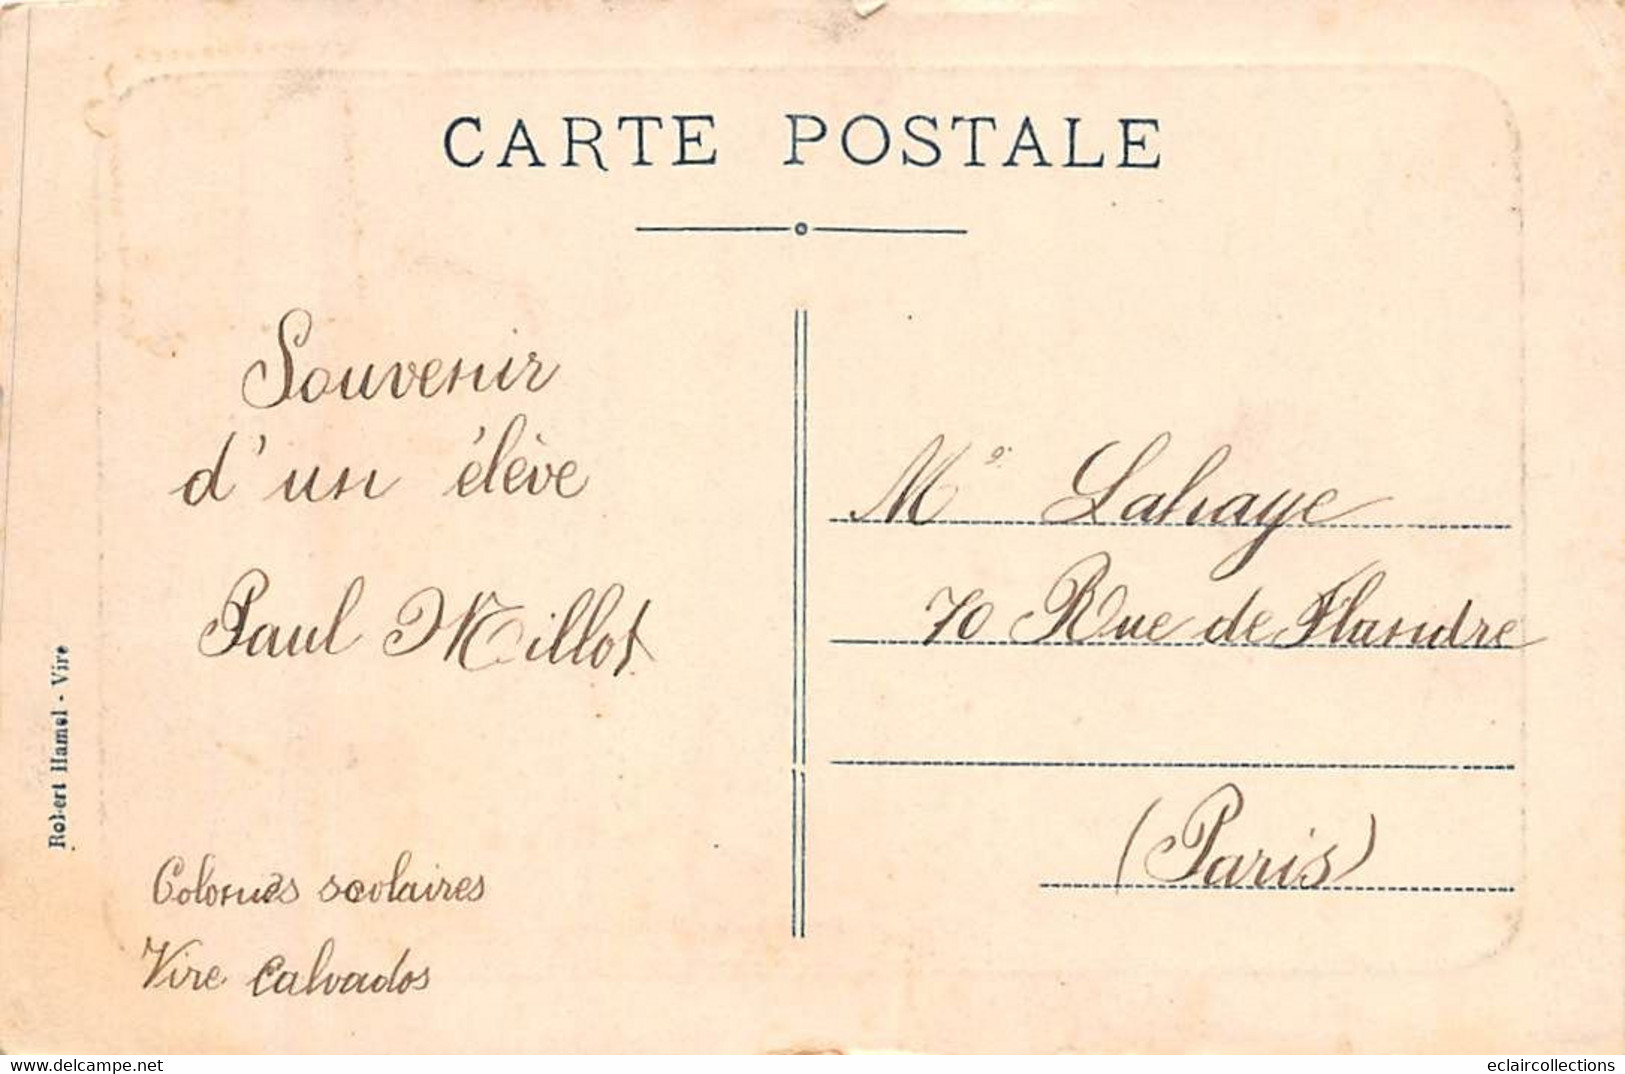 CARTE POSTALE
Souvenir
d'un élève
Paul Millot
Colonies scolaires
Vire Calvados
Mr Lahaye
70 Rue de Flandre
(Paris)
Robert Hamel - Vire
delcampe.net
eclaircollections